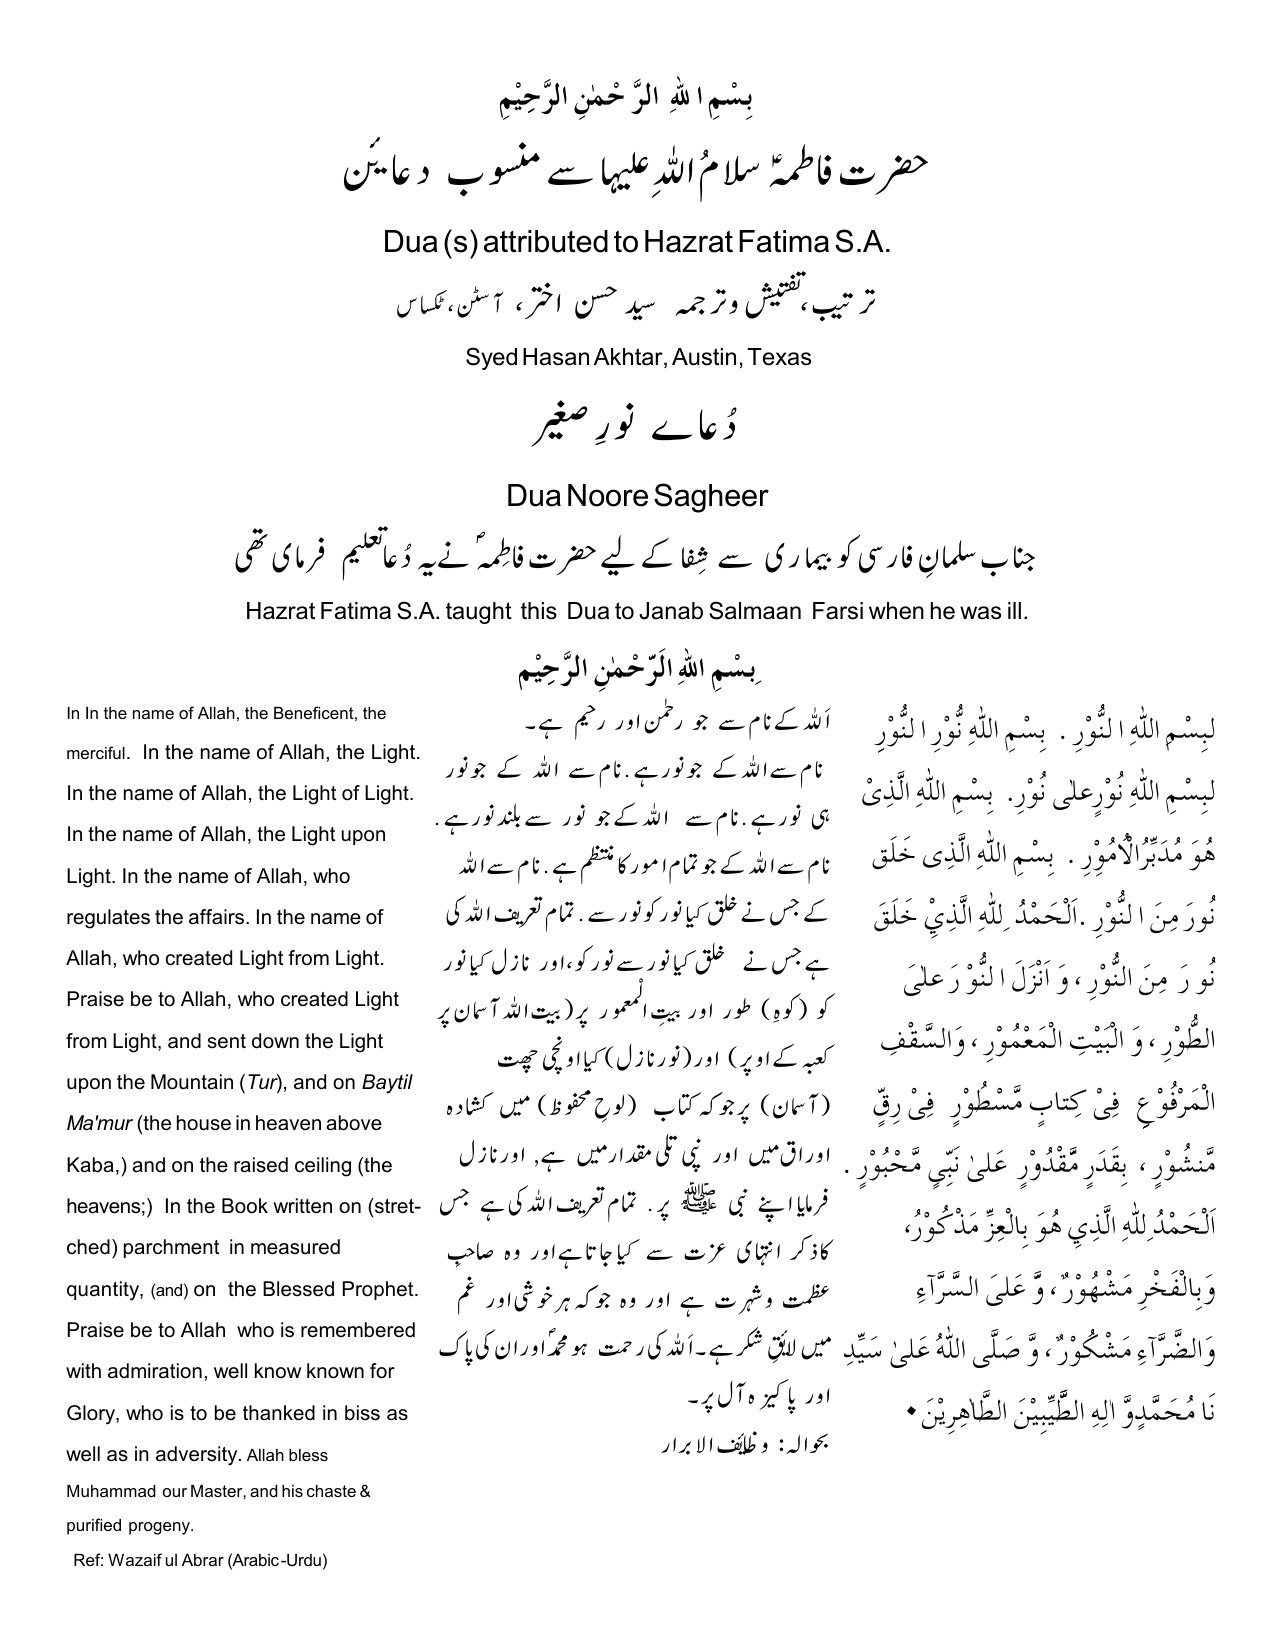 بِسْمِ اللهِ الرَّحْمٰنِ الرَّحِيْمِ
حضرت فاطمہؑ سلامُ اللہِ علیہا سے منسوب دعایئں
Dua (s) attributed to Hazrat Fatima S.A.
ترتیب، تفتیش وترجمہ سید حسن اختر، آسٹن، ٹکساس
Syed Hasan Akhtar, Austin, Texas
دُعاے نورِ صغیر
Dua Noore Sagheer
جناب سلمانِ فارسی کو بیماری سے شِفا کے لیے حضرت فاطِمہؑ نے یہ دُعا تعلیم فرمای تھی
Hazrat Fatima S.A. taught this Dua to Janab Salmaan Farsi when he was ill.
بِسْمِ اللهِ الَرّحْمٰنِ الرَّحِيْم
لبِسْمِ اللهِ ا لنُّوْرِ . بِسْمِ اللهِ نُّوْرِ ا لنُّوْرِ
لبِسْمِ اللهِ نُوْرٍعلٰى نُوْرِ. بِسْمِ اللهِ الَّذِیْ
هُوَ مُدَبِّرُالْاُمُوْرِ . بِسْمِ اللهِ الَّذِی خَلَق
نُورَ مِنَ ا لنُّوْرِ .اَلْحَمْدُ لِلّٰهِ الَّذِيْ خَلَقَ
نُو رَ مِنَ النُّوْرِ ، وَ اَنْزَلَ ا لنُّوْ رَ علٰىَ
الطُّوْرِ ، وَ الْبَيْتِ الْمَعْمُوْرِ ، وَالسَّقْفِ
الْمَرْفُوْعِ فِیْ كِتابٍ مَّسْطُوْرٍ فِیْ رِقٍّ
مَّنشُوْرٍ ، بِقَدَرٍ مَّقْدُوْرٍ عَلىٰ نَبِّيٍ مَّحْبُوْرٍ .
اَلْحَمْدُ لِلّٰهِ الَّذِيِ هُوَ بِالْعِزِّ مَذْكُوْرُ،
وَبِالْفَخْرِ مَشْهُوْرٌ ، وَّ عَلىَ السَّرَّآءِ
وَالضَّرَّآءِ مَشْكُوْرٌ ، وَّ صَلَّى اللهُ عَلىٰ سَيِّدِ
نَا مُحَمَّدٍوَّ اٰلِهِ الطَّيِّبِيْنَ الطَّاهِرِيْنَ ٠
اَللہ کے نام سے جو رحمٰن اور رحیم ہے۔
نام سے اللہ کے جونور ہے. نام سے اللہ کے جونور
ہی نور ہے. نام سے اللہ کے جو نور سے بلند نور ہے.
نام سے اللہ کے جو تمام امور کا منتظم ہے. نام سے اللہ
کے جس نے خلق کیا نور کو نور سے. تمام تعریف اللہ کی
ہے جس نے خلق کیا نور سے نور کو، اور نازل کیا نور
کو (کوہِ) طور اور بیتِ المعمور پر( بیت اللہ آسمان پر
کعبہ کے اوپر) اور( نور نازل) کیا اونچی چھت
(آسمان) پر جو کہ کتاب (لوحِ محفوظ) میں کشادہ
اوراق میں اور نپی تلی مقدار میں ہے, اور نازل
فرمایا اپنے نبی ﷺ پر. تمام تعریف اللہ کی ہے جس
کا ذکر انتہای عزت سے کیا جاتا ہے اور وہ صاحبِ
عظمت وشہرت ہے اور وہ جو کہ ہر خوشی اور غم
میں لائقِ شکر ہے۔ اَللہ کی رحمت ہو محمدؐ اور ان کی پاک
اور پاکیزہ آل پر۔
بحوالہ: وظائف الابرار
In In the name of Allah, the Beneficent, the
merciful. In the name of Allah, the Light.
In the name of Allah, the Light of Light.
In the name of Allah, the Light upon
Light. In the name of Allah, who
regulates the affairs. In the name of
Allah, who created Light from Light.
Praise be to Allah, who created Light
from Light, and sent down the Light
upon the Mountain (Tur), and on Baytil
Ma'mur (the house in heaven above
Kaba,) and on the raised ceiling (the
heavens;) In the Book written on (stret-
ched) parchment in measured
quantity, (and) on the Blessed Prophet.
Praise be to Allah who is remembered
with admiration, well know known for
Glory, who is to be thanked in biss as
well as in adversity. Allah bless
Muhammad our Master, and his chaste &
purified progeny.
Ref: Wazaif ul Abrar (Arabic-Urdu)